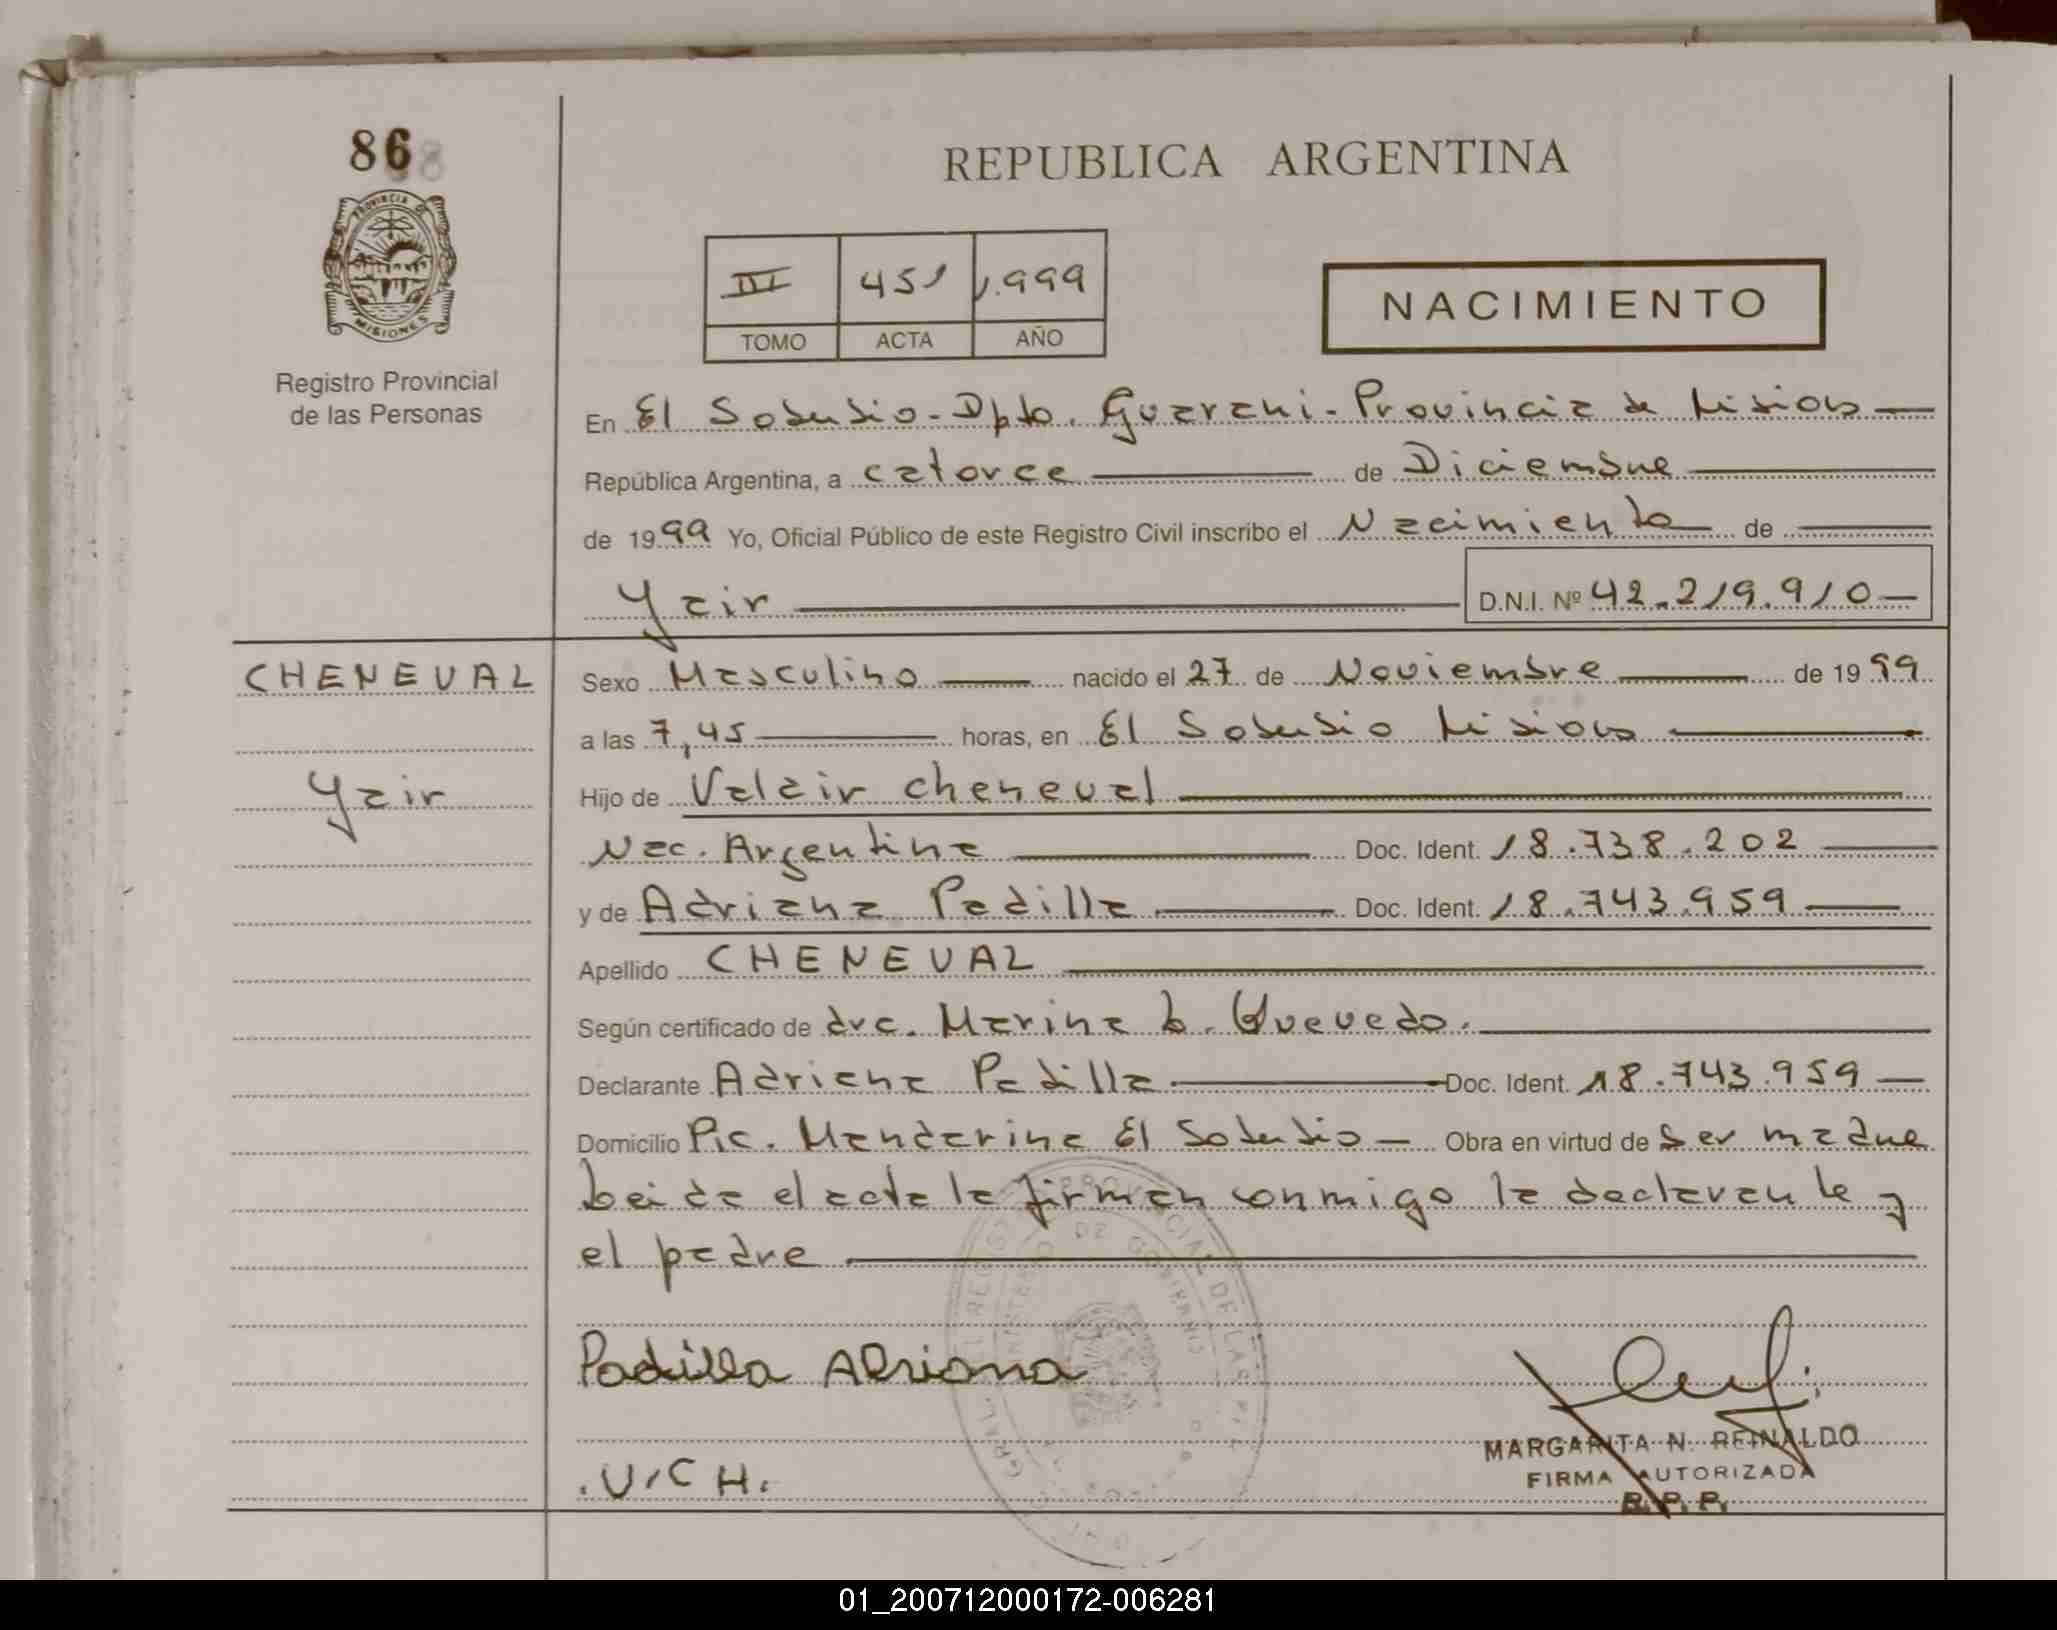 86
PROVINCIA DE
MISIONES
Registro Provincial
de las Personas
REPUBLICA ARGENTINA
III 451 1.999
TOMO ACTA AÑO
NACIMIENTO
En El Soberbio - Dpto. Guarani - Provincia de Misiones
República Argentina, a catorce de Diciembre
de 1999 Yo, Oficial Público de este Registro Civil inscribo el Nacimiento de
Yair D.N.I. Nº 42.219.910
CHENEVAL
Yair
Sexo Masculino nacido el 27 de Noviembre de 1999
a las 7,45 horas, en El Soberbio Misiones
Hijo de Valair Cheneval
Nac. Argentina Doc. Ident. 18.738.202
y de Adriana Padilla Doc. Ident. 18.743.959
Apellido CHENEVAL
Según certificado de dra. Marina L. Quevedo.
Declarante Adriana Padilla Doc. Ident. 18.743.959
Domicilio Pic. Mandarina El Soberbio Obra en virtud de Ser madre
Leida el acta la firman conmigo la declarante y
el padre
Padilla Adriana
.V.CH.
MARGARITA N. REINALDO
FIRMA AUTORIZADA
R. P. P.
01_200712000172-006281